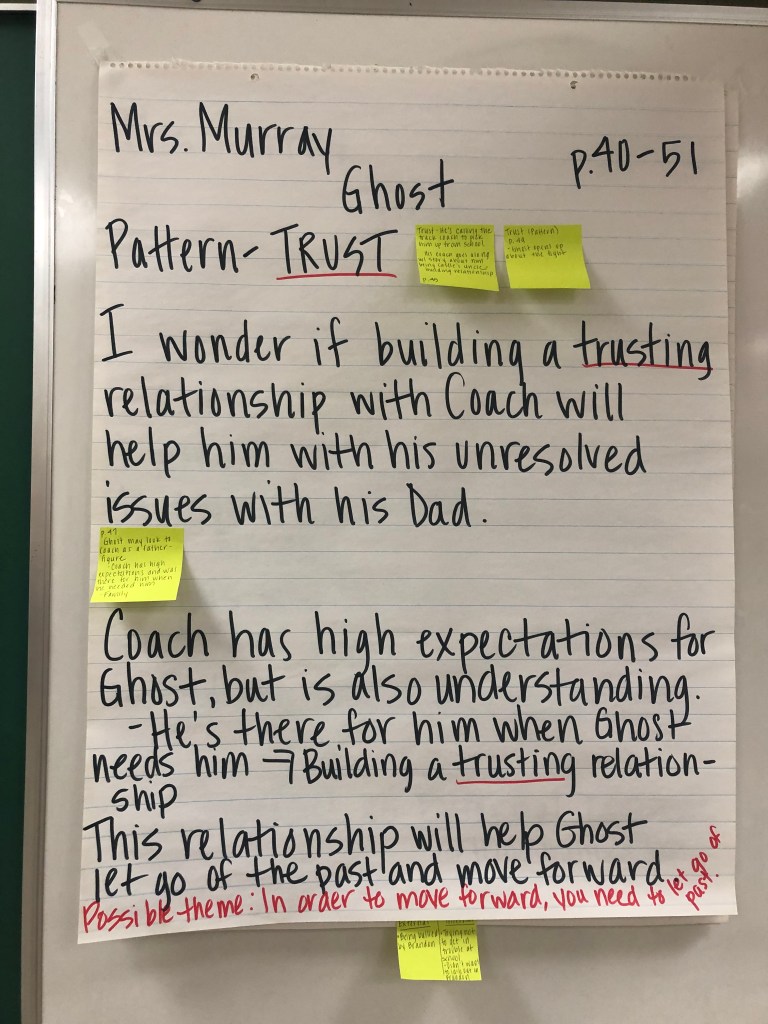 Mrs. Murray
p.40-51
Ghost
Pattern- TRUST
Trust-He's calling the
track coach to pick
him up from school.
His coach goes along
w/ story about him
being Castle's uncle-
building relationship
p.45
Trust (Pattern)
p.49
-Ghost opens up
about the fight
I wonder if building a trusting
relationship with Coach will
help him with his unresolved
issues with his Dad.
p.47
Ghost may look to
Coach as a father-
figure
-Coach has high
expectations and was
there for him when
he needed him
Coach has high expectations for
Ghost, but is also understanding.
-He's there for him when Ghost
needs him → Building a trusting relation-
ship
This relationship will help Ghost
let go of the past and move forward
Possible theme: In order to move forward, you need to let go of
past.
External
-Being bullied
by Brandon
-Trying not
to get in
trouble at
school
-Didn't want